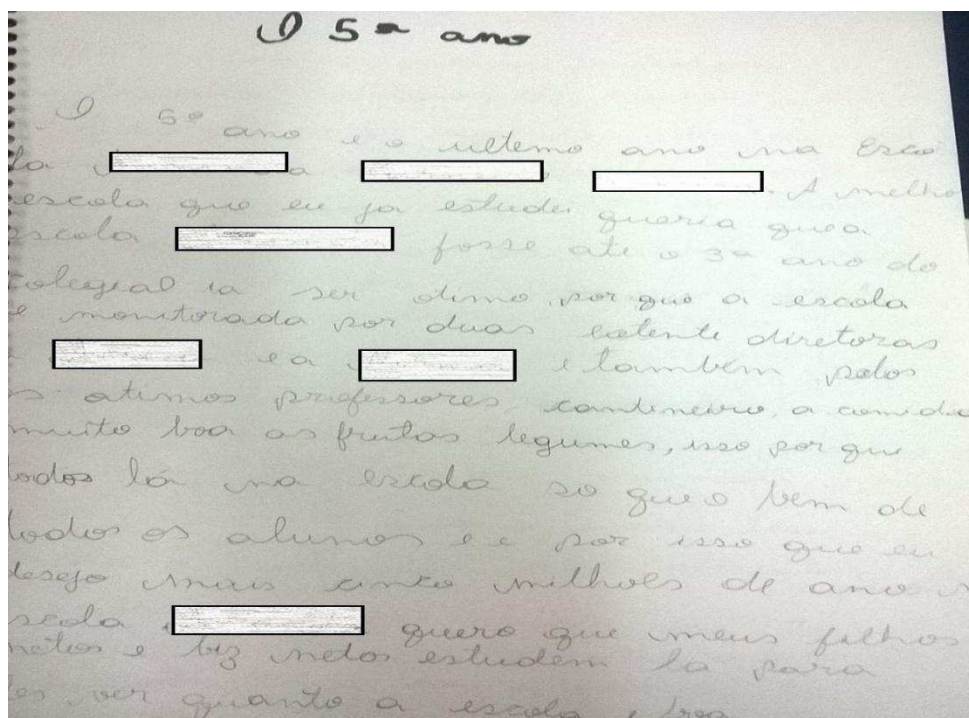 O 5º ano
O 5º ano e o ultemo ano na Esco
la a , . A melho
escola que eu ja estudei queria que a
escola fosse ate o 3º ano do
colegial ia ser otimo por que a escola
e monitorada por duas diretoras
e a e também pelos
s otimos professores cantineiro, a comida
muito boa as frutas legumes, isso por que
todos lá na escola so que o bem de
todos os alunos e e por isso que eu
desejo mais milhoes de ano
escola quero que meus filhos
netos e biz netos estudem la para
es ver quanto a escola e boa